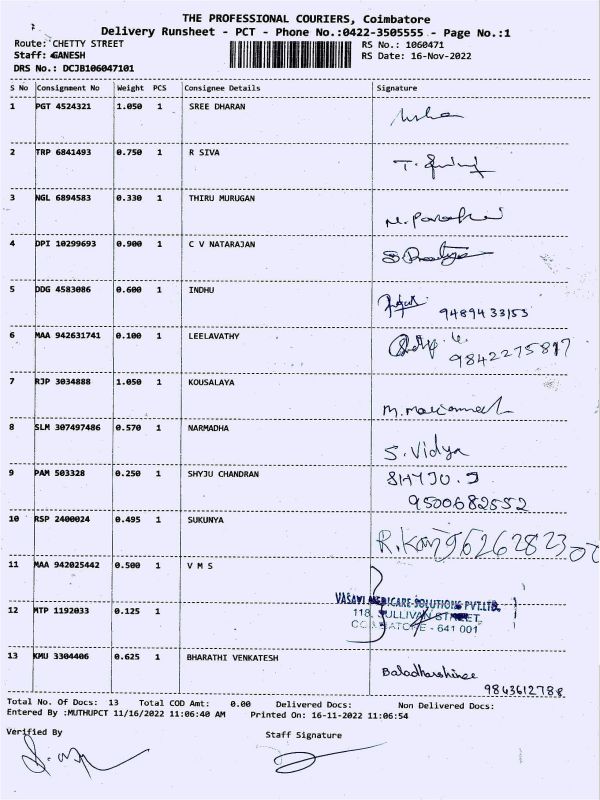 THE PROFESSIONAL COURIERS, Coimbatore
Delivery Runsheet - PCT - Phone No.:0422-3505555 - Page No.:1
Route: CHETTY STREET RS No.: 1060471
Staff: GANESH RS Date: 16-Nov-2022
DRS No.: DCJB106047101
S No Consignment No Weight PCS Consignee Details Signature
1 PGT 4524321 1.050 1 SREE DHARAN
2 TRP 6841493 0.750 1 R SIVA
3 NGL 6894583 0.330 1 THIRU MURUGAN
4 DPI 10299693 0.900 1 C V NATARAJAN
5 DDG 4583086 0.600 1 INDHU
9489433153
6 MAA 942631741 0.100 1 LEELAVATHY
9842275817
7 RJP 3034888 1.050 1 KOUSALAYA
8 SLM 307497486 0.570 1 NARMADHA
S. Vidya
9 PAM 503328 0.250 1 SHYJU CHANDRAN SHYJU.J
9500682552
10 RSP 2400024 0.495 1 SUKUNYA
11 MAA 942025442 0.500 1 V M S
VASAVI MEDICARE SOLUTIONS PVT.LTD.
12 MTP 1192033 0.125 1 118, SULLIVAN STREET,
COIMBATORE - 641 001
13 KMU 3304406 0.625 1 BHARATHI VENKATESH Baladharshinee
9843612788
Total No. Of Docs: 13 Total COD Amt: 0.00 Delivered Docs: Non Delivered Docs:
Entered By :MUTHUPCT 11/16/2022 11:06:40 AM Printed On: 16-11-2022 11:06:54
Verified By Staff Signature